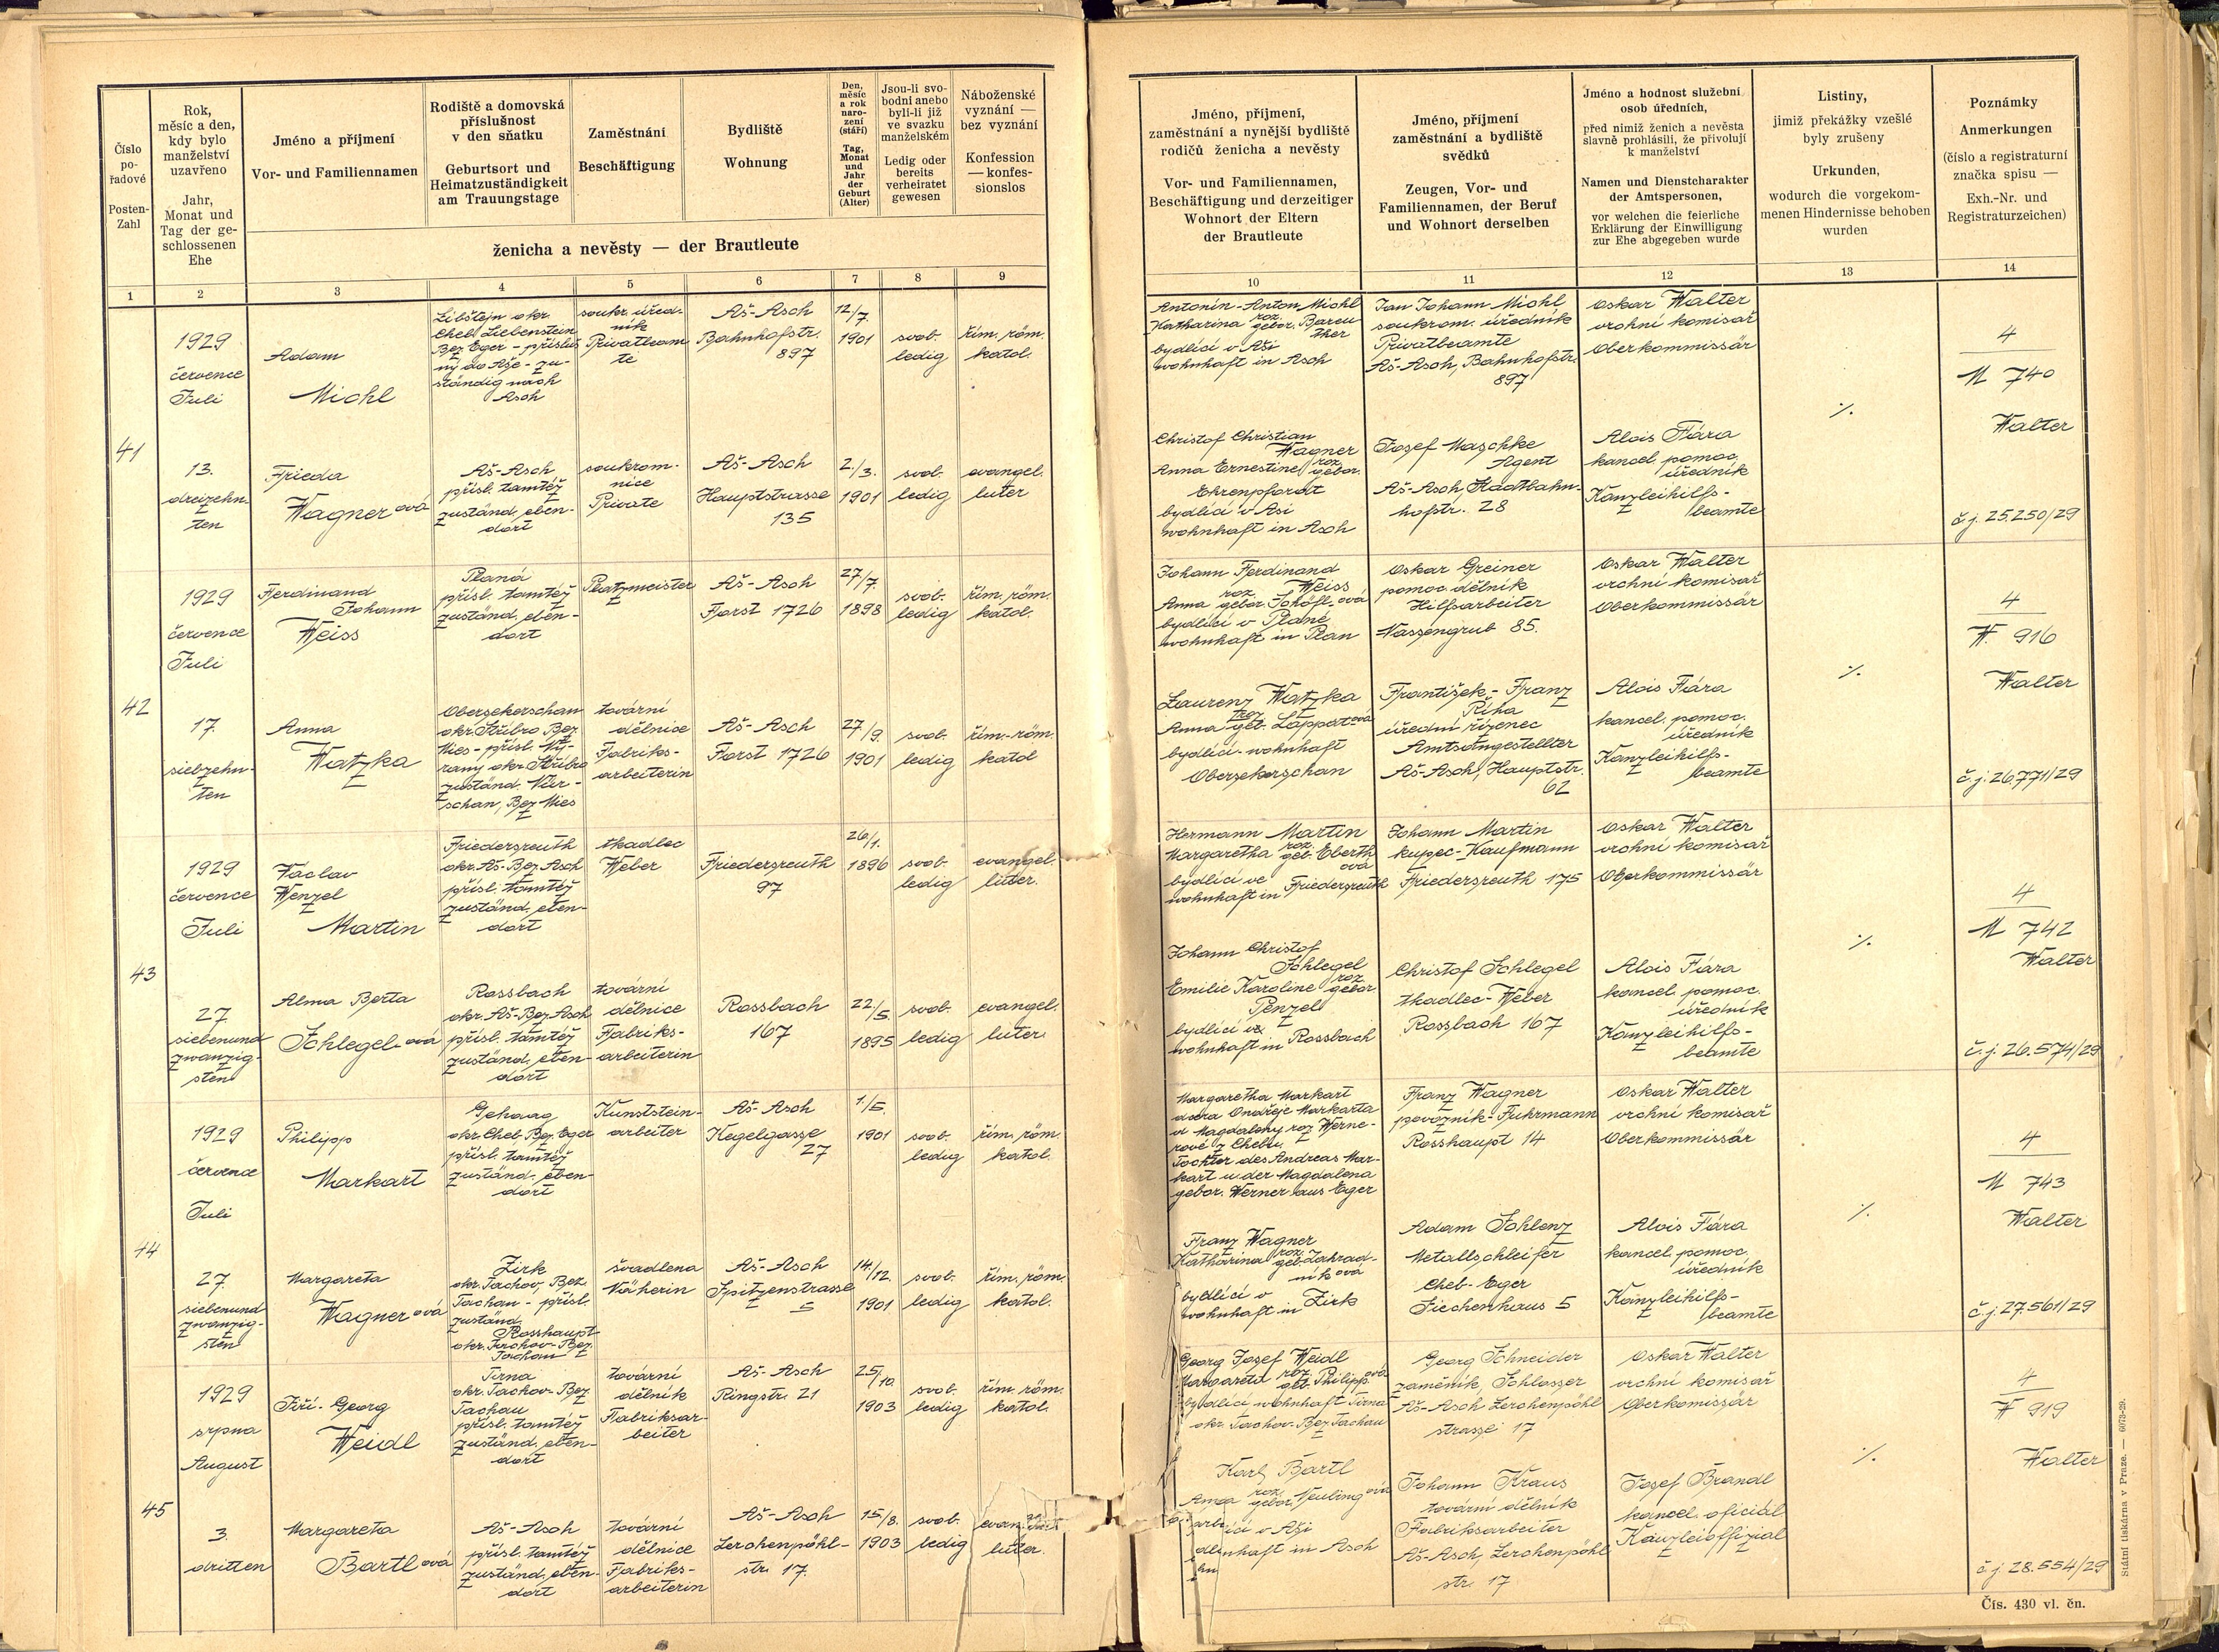 Číslo
po-
řadové
Posten-
Zahl
Rok,
měsíc a den,
kdy bylo
manželství
uzavřeno
Jahr,
Monat und
Tag der ge-
schlossenen
Ehe
Jméno a příjmení
Vor- und Familiennamen
Rodiště a domovská
příslušnost
v den sňatku
Geburtsort und
Heimatzuständigkeit
am Trauungstage
Zaměstnání
Beschäftigung
Bydliště
Wohnung
Den,
měsíc
a rok
naro-
zení
(stáří)
Tag,
Monat
und
Jahr
der
Geburt
(Alter)
Jsou-li svo-
bodni anebo
byli-li již
ve svazku
manželském
Ledig oder
bereits
verheiratet
gewesen
Náboženské
vyznání —
bez vyznání
Konfession
— konfes-
sionslos
ženicha a nevěsty — der Brautleute
Jméno, příjmení,
zaměstnání a nynější bydliště
rodičů ženicha a nevěsty
Vor- und Familiennamen,
Beschäftigung und derzeitiger
Wohnort der Eltern
der Brautleute
Jméno, příjmení
zaměstnání a bydliště
svědků
Zeugen, Vor- und
Familiennamen, der Beruf
und Wohnort derselben
Jméno a hodnost služební
osob úředních,
před nimiž ženich a nevěsta
slavně prohlásili, že přivolují
k manželství
Namen und Dienstcharakter
der Amtspersonen,
vor welchen die feierliche
Erklärung der Einwilligung
zur Ehe abgegeben wurde
Listiny,
jimiž překážky vzešlé
byly zrušeny
Urkunden,
wodurch die vorgekom-
menen Hindernisse behoben
wurden
Poznámky
Anmerkungen
(číslo a registraturní
značka spisu —
Exh.-Nr. und
Registraturzeichen)
1 2 3 4 5 6 7 8 9 10 11 12 13 14
41
1929
července
Juli
13.
dreizehn-
ten
Adam
Michl
Libštejn okr.
Cheb Liebenstein
Bez Eger - přísluš
ný do Aše - zu-
ständig nach
Asch
soukr. úřed-
ník
Privatbeam
te
Aš-Asch
Bahnhofstr.
897
12/7.
1901
svob.
ledig
řím. röm.
katol.
Antonín - Anton Michl
Katharina roz. gebor. Bareu
ther
bydlící v Aši
wohnhaft in Asch
Jan Johann Michl
soukrom. úředník
Privatbeamte
Aš-Asch, Bahnhofstr.
897
Oskar Walter
vrchní komisař
Oberkommissär
4
M 740
Frieda
Wagner ová
Aš-Asch
přísl. tamtéž
zuständ. eben-
dort
soukrom-
nice
Private
Aš-Asch
Hauptstrasse
135
2./3.
1901
svob.
ledig
evangel.
luter
Christof Christian
Wagner
Anna Ernestine roz. gebor.
Ehrenpfordt
bydlící v Aši
wohnhaft in Asch
Josef Maschke
Agent
Aš-Asch, Stadtbahn-
hofstr. 28
Alois Fiára
kancel. pomoc.
úředník
Kanzleihilfs-
beamte
·/.
Walter
č.j. 25.250/29
42
1929
července
Juli
17.
siebzehn-
ten
Ferdinand
Johann
Weiss
Planá
přísl. tamtéž
zuständ. eben-
dort
Platzmeister
Aš-Asch
Forst 1726
27/7.
1898
svob.
ledig
řím. röm.
katol.
Johann Ferdinand
Weiss
Anna roz. gebor. Schöfl-ová
bydlící v Plané
wohnhaft in Plan
Oskar Greiner
pomoc. dělník
Hilfsarbeiter
Nassengrub 85.
Oskar Walter
vrchní komisař
Oberkommissär
4
W. 916
Anna
Watzka
Obersekerschan
okr. Stříbro Bez.
Mies - přísl. Ný-
rany okr. Stříbro
zuständ. Nür-
schan, Bez Mies
tovární
dělnice
Fabriks-
arbeiterin
Aš-Asch
Forst 1726
27/9.
1901
svob.
ledig
řím.-röm.
katol
Laurenz Watzka
Anna roz. geb. Lappat ová
bydlící - wohnhaft
Obersekerschan
František - Franz
Říha
úřední zřízenec
Amtsangestellter
Aš-Asch, Hauptstr.
62
Alois Fiára
kancel. pomoc.
úředník
Kanzleihilfs-
beamte
·/.
Walter
č.j. 26.771/29
43
1929
července
Juli
27
siebenund
zwanzig-
sten
Václav
Wenzel
Martin
Friedersreuth
okr. Aš-Bez. Asch
přísl. tamtéž
zuständ. eben-
dort
tkadlec
Weber
Friedersreuth
97
26/1.
1896
svob.
ledig
evangel.
luter.
Hermann Martin
Margaretha roz. geb. Eberth
ová
bydlící ve
wohnhaft in Friedersreuth
Johann Martin
kupec - Kaufmann
Friedersreuth 175
Oskar Walter
vrchní komisař
Oberkommissär
4
M 742
Alma Berta
Schlegel-ová
Rossbach
okr. Aš-Bez Asch
přísl. tamtéž
zuständ. eben-
dort
tovární
dělnice
Fabriks-
arbeiterin
Rossbach
167
22/5
1895
svob.
ledig
evangel.
luter.
Johann Christof
Schlegel
Emilie Karoline roz. gebor
Penzel
bydlící ve
wohnhaft in Rossbach
Christof Schlegel
tkadlec - Weber
Rossbach 167
Alois Fiára
kancel. pomoc.
úředník
Kanzleihilfs-
beamte
·/.
Walter
č.j. 26.574/29
44
1929
července
Juli
27.
siebenund
zwanzig-
sten
Philipp
Markart
Gehaag
okr. Cheb - Bez. Eger
přísl. tamtéž
zuständ. eben-
dort
Kunststein-
arbeiter
Aš-Asch
Kegelgasse
27
1./5.
1901
svob.
ledig
řím. röm.
katol.
Margaretha Markart
dcera Ondřeje Markarta
a Magdaleny roz. Werne-
rové z Chebu.
Tochter des Andreas Mar-
kart u. der Magdalena
gebor. Werner aus Eger
Franz Wagner
povozník - Fuhrmann
Rosshaupt 14
Oskar Walter
vrchní komisař
Oberkommissär
4
M 743
Margareta
Wagner ová
Zirk
okr. Tachov, Bez.
Tachau - přísl.
zuständ
Rosshaupt
okr. Tachov - Bez.
Tachau
švadlena
Näherin
Aš-Asch
Spitzenstrasse
5
14./12.
1901
svob.
ledig
řím. röm.
katol.
Franz Wagner
Katharina roz. geb. Zahrad-
ník ová
bydlící v
wohnhaft in Zirk
Adam Schlenz
Metallschleifer
Cheb - Eger
Siechenhaus 5
Alois Fiára
kancel. pomoc.
úředník
Kanzleihilfs-
beamte
·/.
Walter
č.j. 27.561/29
45
1929
srpna
August
3.
dritten
Jiří - Georg
Weidl
Tirna
okr. Tachov - Bez
Tachau
přísl. tamtéž
zuständ. eben-
dort
tovární
dělník
Fabriksar-
beiter
Aš-Asch
Ringstr. 21
25/10.
1903
svob.
ledig
řím. röm.
katol.
Georg Josef Weidl
Margareta roz. geb. Philipp ová
bydlící wohnhaft Tirna
okr. Tachov - Bez Tachau
Georg Schneider
zámečník, Schlosser
Aš-Asch Lerchenpöhl
strasse 17
Oskar Walter
vrchní komisař
Oberkommissär
4
W 919
Margareta
Bartl ová
Aš-Asch
přísl. tamtéž
zuständ. eben-
dort
tovární
dělnice
Fabriks-
arbeiterin
Aš-Asch
Lerchenpöhl-
str. 17.
15/8.
1903
svob.
ledig
luter.
Karl Bartl
Anna roz. gebor. Neuling ová
v Aši
in Asch
Johann Kraus
tovární dělník
Fabriksarbeiter
Aš-Asch, Lerchenpöhl
str. 17
Josef Brandl
kancel. oficiál
Kanzleioffizial
·/.
Walter
č.j. 28.554/29
Státní tiskárna v Praze. — 6073-29.
Čís. 430 vl. čn.